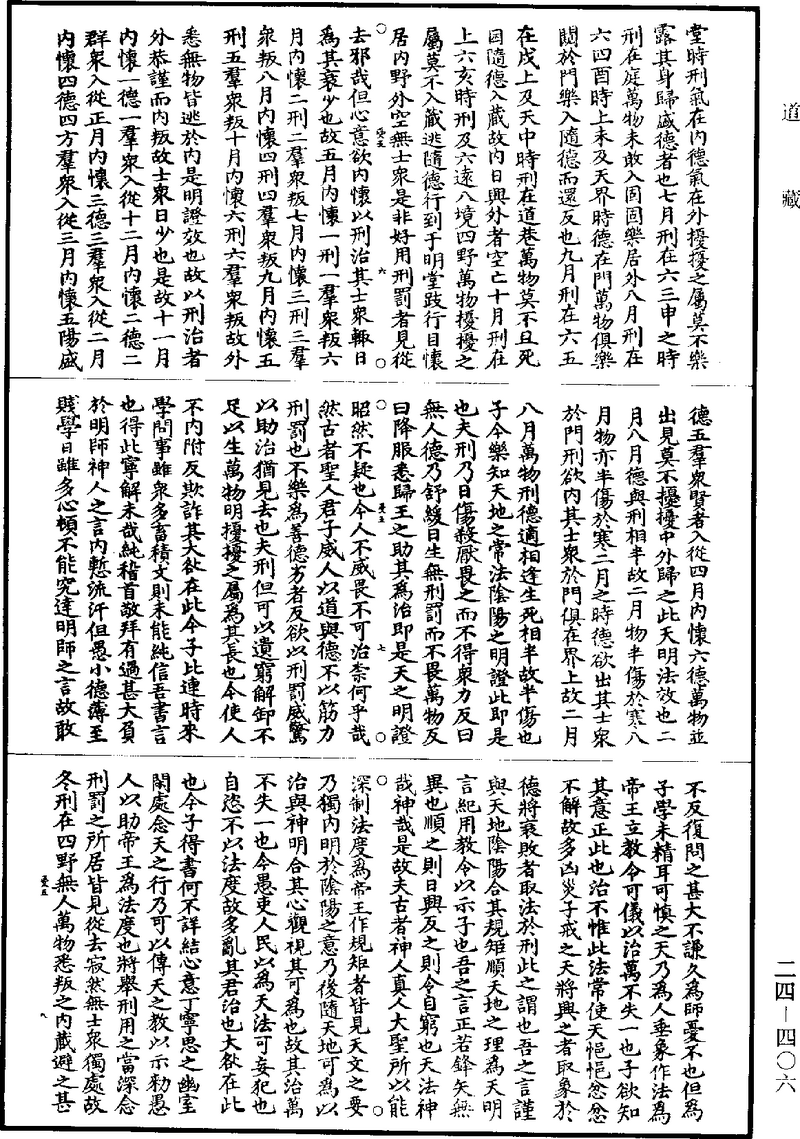 道藏
堂時刑氣在內德氣在外擾擾之屬莫不樂
露其身歸盛德者也七月刑在六三申之時
刑在庭萬物未敢入固固樂居外八月刑在
六四酉時上未及天界時德在門萬物俱樂
闚於門樂入隨德而還反也九月刑在六五
在戌上及天中時刑在道巷萬物莫不且死
困隨德入藏故內日興外者空亡十月刑在
上六亥時刑及六遠八境四野萬物擾擾之
屬莫不入藏逃隨德行到于明堂跂行目懷
居內野外空無士衆是非好用刑罰者見從
去邪哉但心意欲內懷以刑治其士衆輙日
為其衰少也故五月內懷一刑一羣衆叛六
月內懷二刑二羣衆叛七月內懷三刑三羣
衆叛八月內懷四刑四羣衆叛九月內懷五
刑五羣衆叛十月內懷六刑六羣衆叛故外
悉無物皆逃於內是明證效也故以刑治者
外恭謹而內叛故士衆日少也是故十一月
內懷一德一羣衆入從十二月內懷二德二
群衆入從正月內懷三德三羣衆入從二月
內懷四德四方羣衆入從三月內懷五陽盛
德五羣衆賢者入從四月內懷六德萬物並
出見莫不擾擾中外歸之此天明法效也二
月八月德與刑相半故二月物半傷於寒八
月物亦半傷於寒二月之時德欲出其士衆
於門刑欲內其士衆於門俱在界上故二月
八月萬物刑德適相逢生死相半故半傷也
子今樂知天地之常法陰陽之明證此即是
也夫刑乃日傷殺厭畏之而不得衆力反曰
無人德乃舒緩日生無刑罰而不畏萬物反
曰降服悉歸王之助其為治即是天之明證
昭然不疑也今人不威畏不可治柰何乎哉
然古者聖人君子威人以道與德不以筋力
刑罰也不樂為善德劣者反欲以刑罰威驚
以助治猶見去也夫刑但可以遺窮解卸不
足以生萬物明擾擾之屬為其長也今使人
不內附反欺詐其大敓在此今子比連時來
學問事雖衆多畜積文則未能純信吾書言
也得此寧解未哉純稽首敬拜有過甚大負
於明師神人之言內慙流汗但愚小德薄至
賤學日雖多心頓不能究達明師之言故敢
不反復問之甚大不謙久為師憂不也但為
子學未精耳可慎之天乃為人垂象作法為
帝王立教令可儀以治萬不失一也子欲知
其意正此也治不惟此法常使天悒悒忿忿
不解故多凶災子戒之天將興之者取象於
德將衰敗者取法於刑此之謂也吾之言謹
與天地陰陽合其規矩順天地之理為天明
言紀用教令以示子也吾之言正若鋒矢無
異也順之則日興反之則令自窮也天法神
哉神哉是故夫古者神人真人大聖所以能
深制法度為帝王作規矩者皆見天文之要
乃獨內明於陰陽之意乃後隨天地可為以
治與神明合其心觀視其可為也故其治萬
不失一也今愚吏人民以為天法可妄犯也
自恣不以法度故多亂其君治也大敓在此
也今子得書何不詳結心意丁寧思之幽室
閑處念天之行乃可以傳天之教以示勑愚
人以助帝王為法度也將舉刑用之當深念
刑罰之所居皆見從去寂然無士衆獨處故
冬刑在四野無人萬物悉叛之內藏避之甚
二四—四〇六